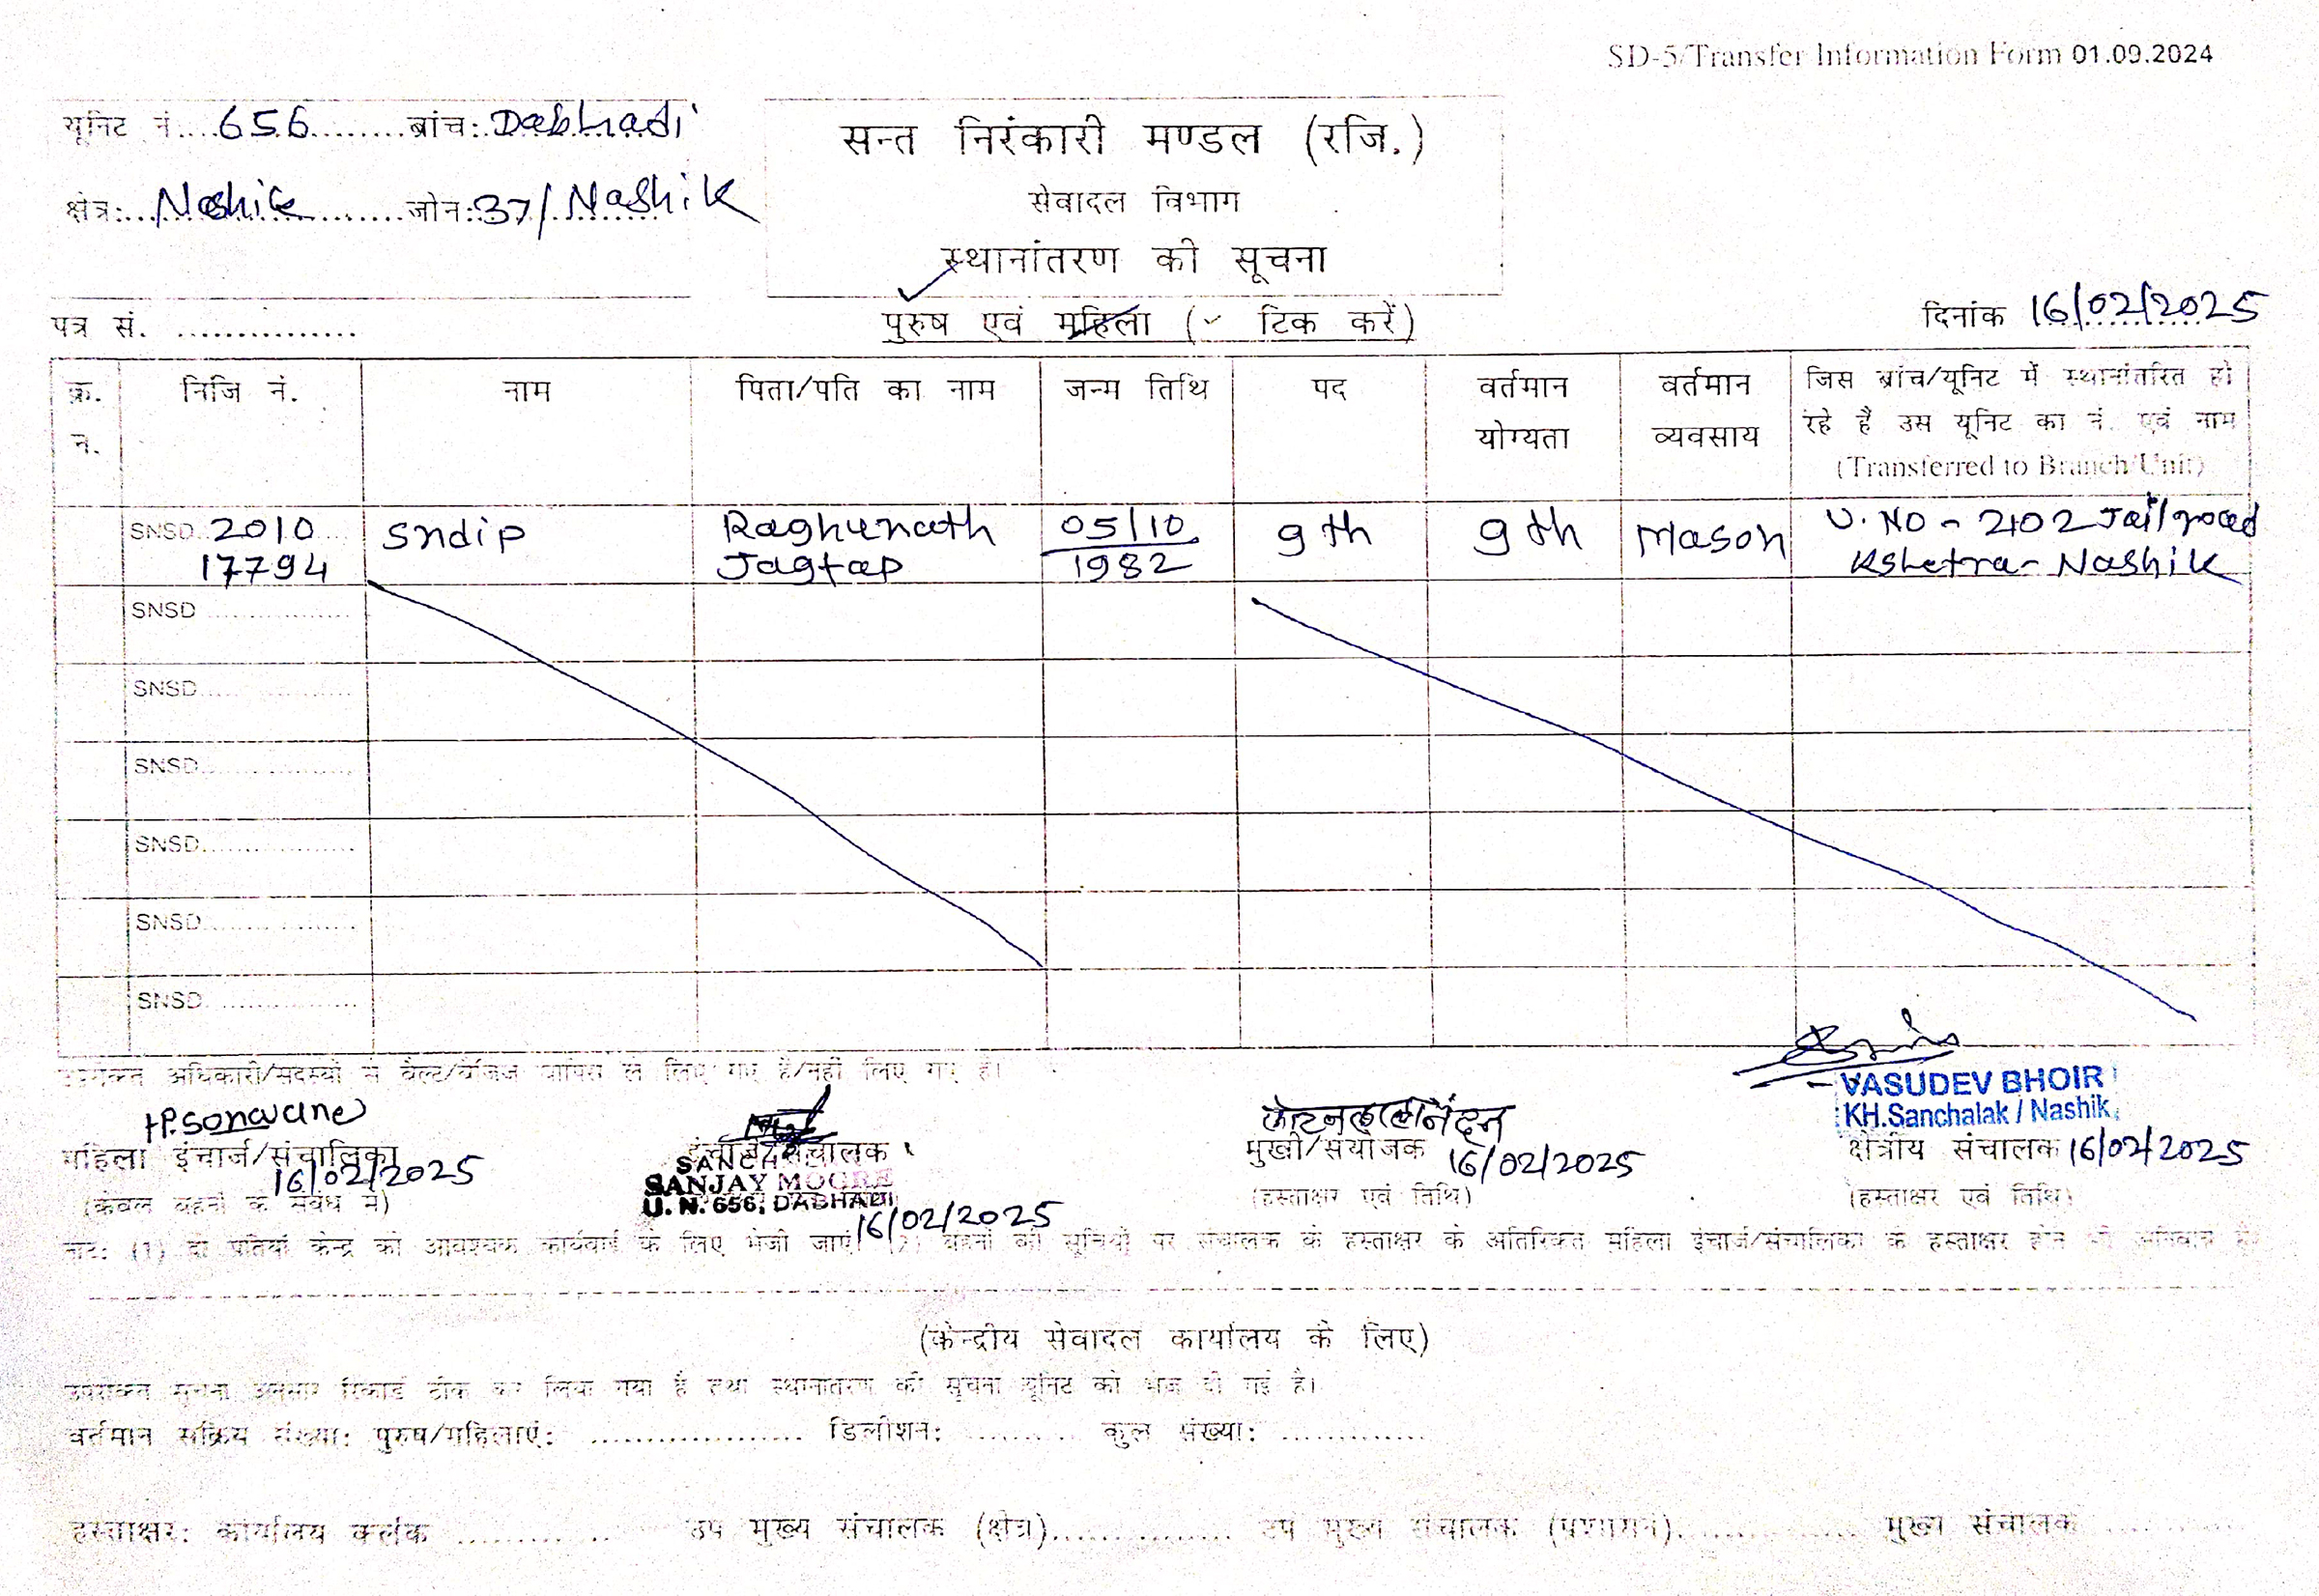 SD-5/Transfer Information Form 01.09.2024
यूनिट नं....656........ब्रांच:.Dabhadi
सन्त निरंकारी मण्डल (रजि.)
क्षेत्र:...Nashik........जोन:37/Nashik
सेवादल विभाग
स्थानांतरण की सूचना
पत्र सं. ...............
पुरुष एवं महिला (✓ टिक करें)
दिनांक 16/02/2025
क्र. नं. निजि नं. नाम पिता/पति का नाम जन्म तिथि पद वर्तमान योग्यता वर्तमान व्यवसाय जिस ब्रांच/यूनिट में स्थानांतरित हो रहे हैं उस यूनिट का नं. एवं नाम (Transferred to Branch/Unit)
SNSD 2010 17794 Sndip Raghunath Jagtap 05/10 1982 9th 9th Mason U.No - 2102 Jail road Kshetra - Nashik
SNSD ..................
SNSD ..................
SNSD ..................
SNSD ..................
SNSD ..................
SNSD ..................
उपरोक्त अधिकारी/सदस्यों से बैल्ट/बैजिज वापिस ले लिए गए हैं/नहीं लिए गए हैं।
H.P.Sonavane
VASUDEV BHOIR
KH.Sanchalak / Nashik
महिला इंचार्ज/संचालिका 16/02/2025
इंचार्ज/संचालक
SANJAY MOGRE
U. N. 656, DABHADI
16/02/2025
मुखी/संयोजक 16/02/2025
क्षेत्रीय संचालक 16/02/2025
(केवल बहनों के संबंध में)
(हस्ताक्षर एवं तिथि)
(हस्ताक्षर एवं तिथि)
नोट: (1) दो प्रतियां केन्द्र को आवश्यक कार्यवाई के लिए भेजी जाएं। (2) बहनों की सूचियों पर संचालक के हस्ताक्षर के अतिरिक्त महिला इंचार्ज/संचालिका के हस्ताक्षर होने भी अनिवार्य हैं।
(केन्द्रीय सेवादल कार्यालय के लिए)
उपरोक्त सूचना अनुसार रिकार्ड ठीक कर लिया गया है तथा स्थानांतरण की सूचना यूनिट को भेज दी गई है।
वर्तमान सक्रिय संख्या: पुरुष/महिलाएं: ................... डिलीशन: .......... कुल संख्या: .............
हस्ताक्षर: कार्यालय क्लर्क .............. उप मुख्य संचालक (क्षेत्र)................ उप मुख्य संचालक (प्रशासन)................ मुख्य संचालक ..............